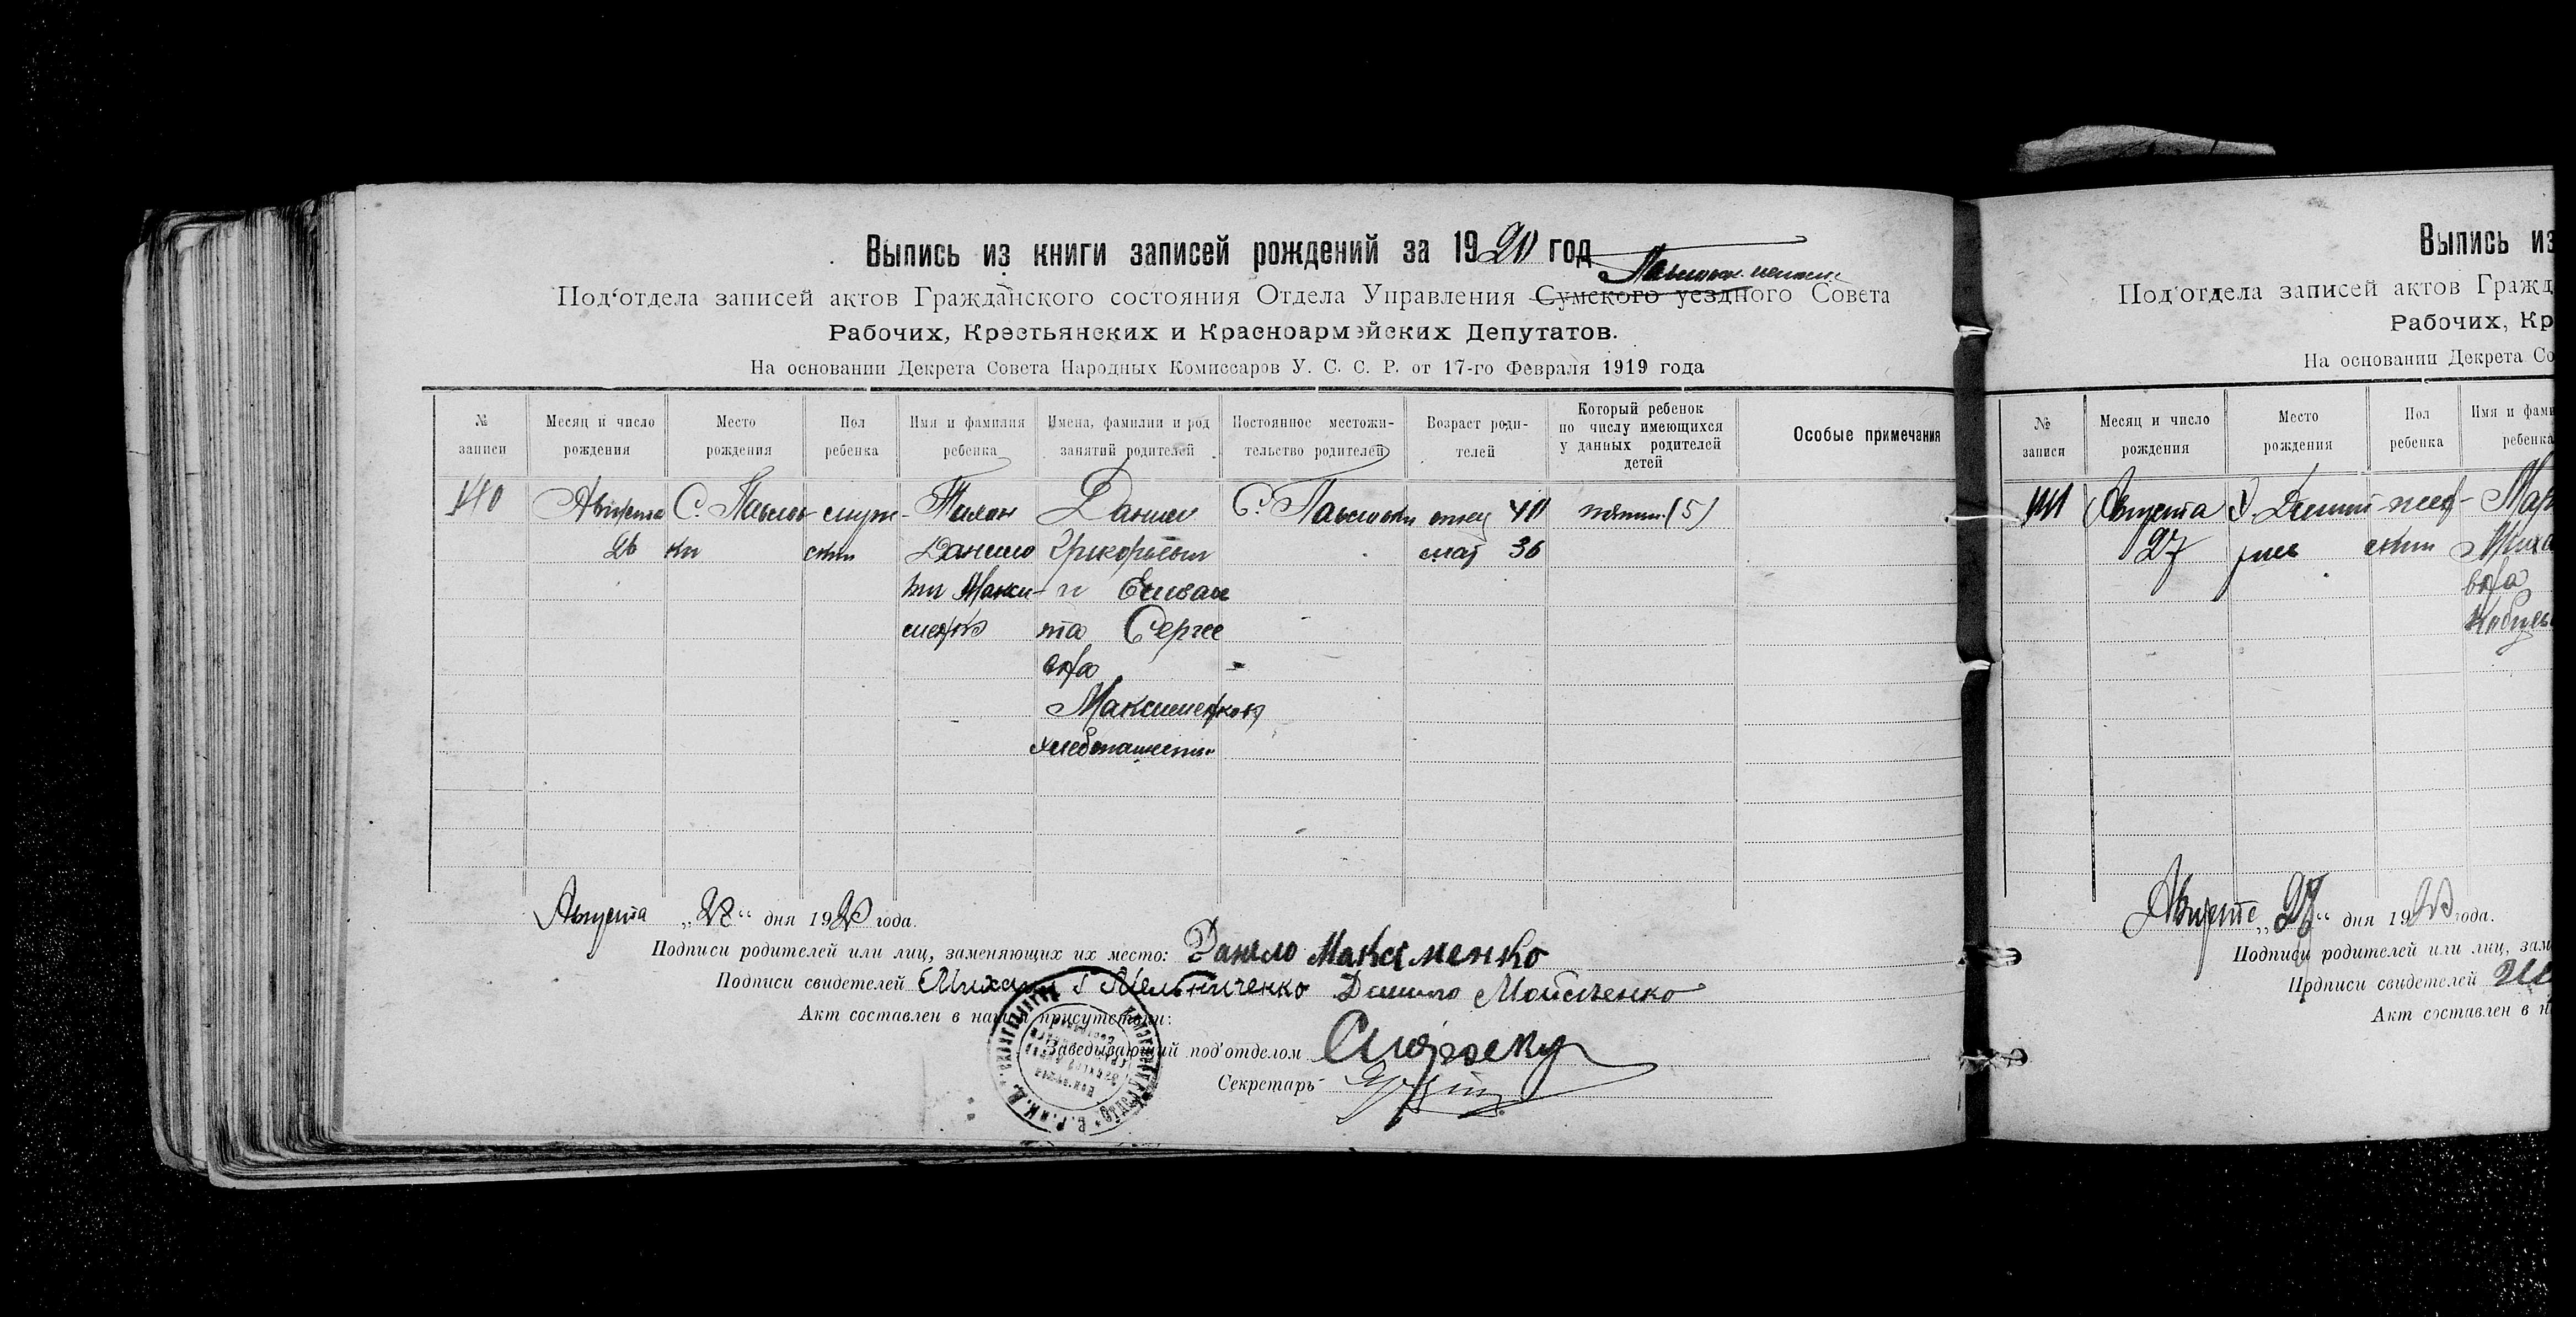 Выпись из книги записей рождений за 1920 год
Под'отдела записей актов Гражданского состояния Отдела Управления Сумского уездного Совета
Рабочих, Крестьянских и Красноармейских Депутатов.
На основании Декрета Совета Народных Комиссаров У. С. С. Р. от 17-го Февраля 1919 года
№ записи
Месяц и число рождения
Место рождения
Пол ребенка
Имя и фамилия ребенка
Имена, фамилии и род занятий родителей
Постоянное местожительство родителей
Возраст родителей
Который ребенок по числу имеющихся у данных родителей детей
Особые примечания
140
Августа
26
С. Павлов-
ки
мужс-
кий
Данило
Макси-
менко
Данил
Григорьевич
и
та Сергее
вна
Максименков
хлебопашество
С. Павловки
отец 40
мат 36
пятый (5)
Августа „28“ дня 1920 года.
Подписи родителей или лиц, заменяющих их место: Данило Максименко
Подписи свидетелей Михаил Г Мельниченко Данило Мойсіенко
Акт составлен в нашем присутствии:
Заведывающий под'отделом
Секретарь
Выпись из
Под'отдела записей актов Гражд
Рабочих, Кр
На основании Декрета Со
№ записи
Месяц и число рождения
Место рождения
Пол ребенка
Имя и фами
ребенка
141
Августа
27
жен-
ский
Мар
Миха
вна
Августа „27“ дня 1920 года.
Подписи родителей или лиц, зам
Подписи свидетелей
Акт составлен в н